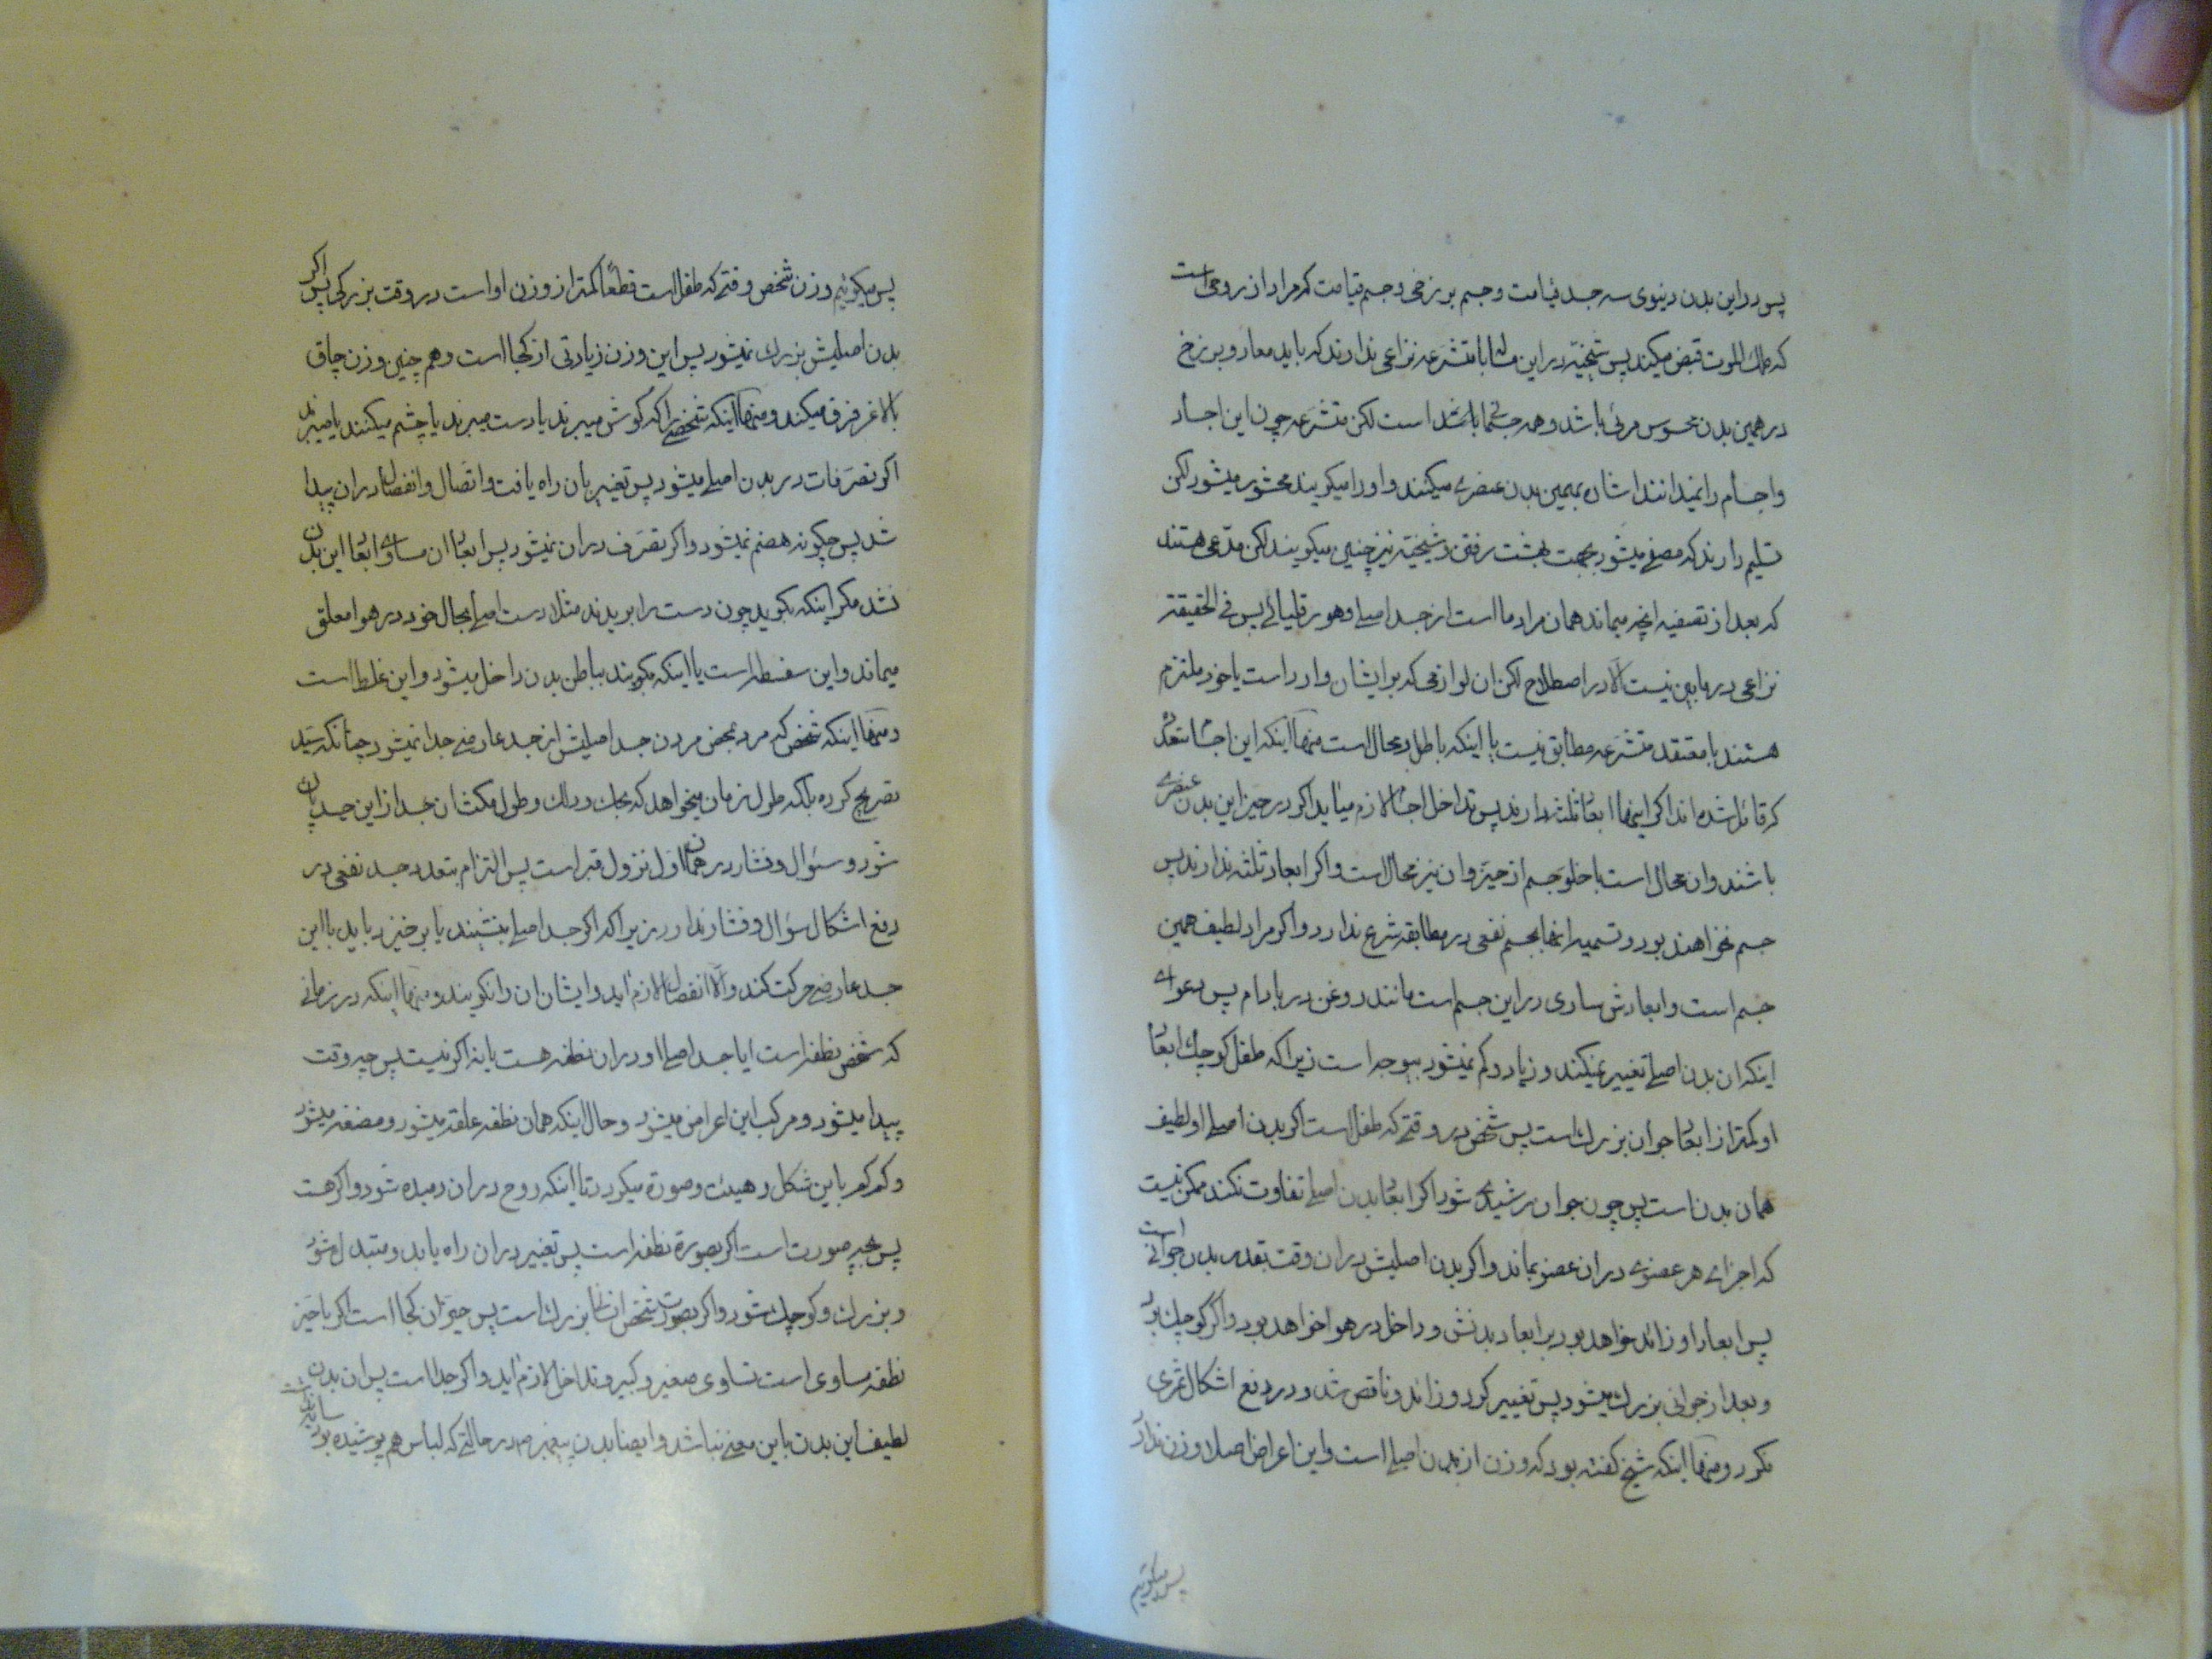 پس در این بدن دنیوی سه جسد قیامت و جسم برزخی و جسم قیامت که مراد از روحی است
که ملک الموت قبض میکند پس شیخیّه در این با متشرّعه نزاعی ندارند که باید معاد و برزخ
در همین بدن محسوس مرئی باشد و همه است لکن متشرّعه چون این اجساد
و اجسام را نمیدانند اشاره بهمین بدن عنصری میکنند و او را میکویند محشور میشود لکن
تسلیم دارند که مصفّی میشود بجهت بهشت رفتن و شیخیّه نیز چنین میکویند لکن مدّعی هستند
که بعد از تصفیه انچه میماند همان مراد ما است از جسد اصلی و هورقلیائی پس فی الحقیقة
نزاعی در مابین نیست الّا در اصطلاح لکن ان لوازمی که بر ایشان وارد است یا خود ملتزم
هستند یا معتقد متشرّعه مطابق نیست یا اینکه باطل و محال است منها اینکه این اجساد متعدده
که قائل شده اند اکر اینها ابعاد ثلثه دارند پس تداخل اجساد لازم میاید اکر در حیز این بدن عنصری
باشند و ان محال است یا خلوّ جسم از حیّز و ان نیز محال است و اکر ابعاد ثلثه ندارند پس
جسم نخواهند بود و تسمیه انها بجسم نفعی در مطابقه شرع ندارد و اکر مراد لطیف همین
جسم است و ابعادش ساری در این جسم است مانند روغن در بادام پس دعوای
اینکه ان بدن اصلی تغییر نمیکند و زیاد و کم نمیشود بیوجه است زیرا که طفل کوچک ابعاد
او کمتر از ابعاد جوان بزرک است پس شخص در وقتی که طفل است اکر بدن اصلی او لطیف
همان بدن است پس چون جوان رشیدی شود اکر ابعاد بدن اصلی تفاوت نکند ممکن نیست
که اجزای هر عضوی در ان عضو بماند و اکر بدن اصلیش در ان وقت بقدر بدن جوانی است
پس ابعاد او زائد خواهد بود بر ابعاد بدنش و داخل در هوا خواهد بود و اکر کوچک بود
و بعد از جوانی بزرک میشود پس تغییر کرد و زائد و ناقص شد و در دفع اشکال ثمری
نکرد و منها اینکه شیخ کفته بود که وزن از بدن اصلی است و این اعراض اصلا وزن ندارد
پس میکوئیم
پس میکوئیم وزن شخص وقتی که طفل است قطعًا کمتر از وزن او است در وقت بزرکی پس اکر
بدن اصلیش بزرک نمیشود پس این وزن زیادتی از کجا است و هم چنین وزن چاق
با لاغر فرق میکند و منها اینکه شخصی را که کوش میبرند یا دست میبرند یا چشم میکنند یا میبرند
اکر تصرّفات در بدن اصلی میشود پس تغییر بان راه یافت و اتّصال و انفصال در ان پیدا
شد پس چکونه هضم نمیشود و اکر تصرّف در ان نمیشود پس ابعاد ان مساوی ابعاد این بدن
نشد مکر اینکه بکوید چون دست را بریدند مثلا دست اصلی بحال خود در هوا معلق
میماند و این سفسطه است یا اینکه بکویند بباطن بدن داخل میشود و این غلط است
و منها اینکه شخص که مرد بمحض مردن جسد اصلیش از جسد عارضی جدا نمیشود چنانکه سیّد
تصریح کرده بلکه طول زمان میخواهد که بحک و دلک و طول مکث ان جسد از این جسد پاک
شود و سئوال و فشار در همان اوّل نزول قبر است پس التزام بتعدد جسد نفعی در
دفع اشکال سؤال و فشار ندارد زیرا که اکر جسد اصلی بنشیند یا برخیزد باید با این
جسد عارضی حرکت کند و الّا انفصال لازم اید و ایشان ان را نکویند و منها اینکه در زمانی
که شخص نطفه است ایا جسد اصلی او در ان نطفه هست یا نه اکر نیست پس چه وقت
پیدا میشود و مرکب این اعراض میشود و حال اینکه همان نطفه علقه میشود و مضغه میشود
و کم کم باین شکل و هیئت و صورة میکردد تا اینکه روح در ان دمیده شود و اکر هست
پس بچه صورت است اکر بصورة نطفه است پس تغییر در ان راه یابد و متبدل شود
و بزرک و کوچک شود و اکر بصورت شخص انسان بزرک است پس حیّز ان کجا است اکر با حیّز
نطفه مساوی است تساوی صغیر و کبیر و تداخل لازم اید و اکر جدا است پس ان بدن
لطیف این بدن باین معنی نباشد و ایضا بدن پیغمبر ص در حالتی که لباس هم پوشیده بود